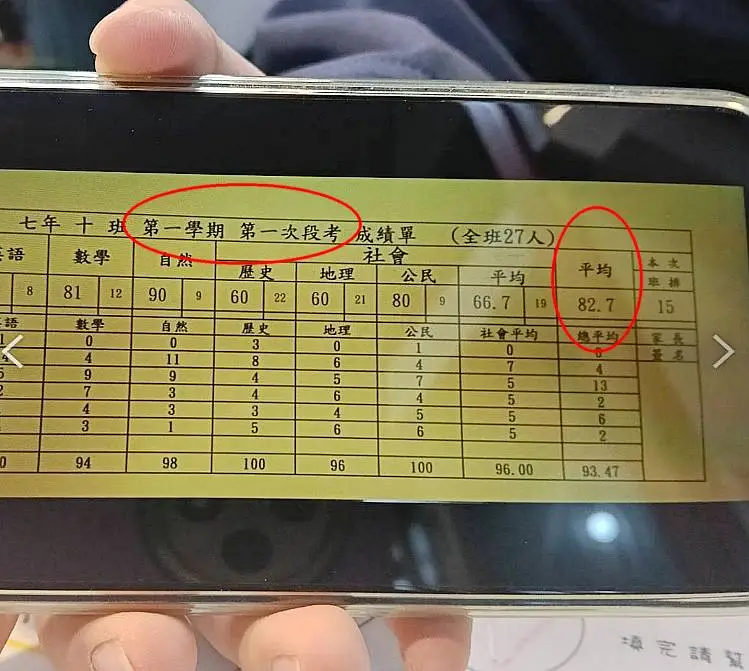 七年 十 班 第一學期 第一次段考 成績單 (全班27人)
語 數學 自然 社會 平均 本次班排
歷史 地理 公民 平均
8 81 12 90 9 60 22 60 21 80 9 66.7 19 82.7 15
語 數學 自然 歷史 地理 公民 社會平均 總平均 家長簽名
0 0 3 0 1 0 0
4 11 8 6 4 7 4
9 9 4 5 7 5 13
7 3 4 6 4 5 2
4 3 3 4 5 5 6
3 1 5 6 6 5 2
0 94 98 100 96 100 96.00 93.47
填完請